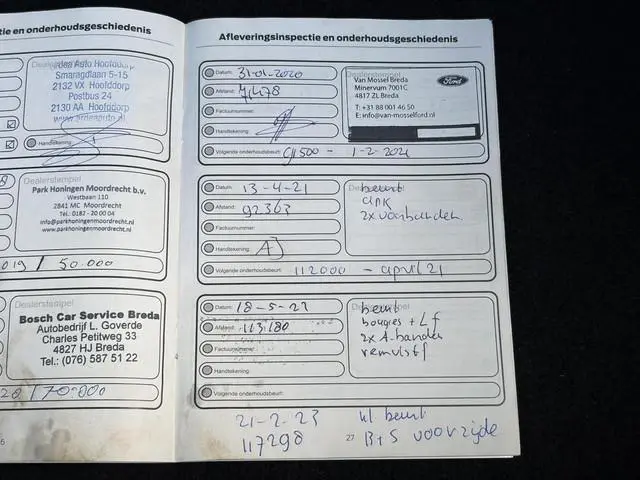 e en onderhoudsgeschiedenis
den Auto Hoofddorp
Smaragdlaan 5-15
2132 VX Hoofddorp
Postbus 24
2130 AA Hoofddorp
www.ardeaauto.nl
Handtekening:
Dealerstempel
Park Honingen Moordrecht b.v.
Westbaan 110
2841 MC Moordrecht
Tel.: 0182 - 20 00 04
info@parkhoningenmoordrecht.nl
www.parkhoningenmoordrecht.nl
019 / 50.000
Dealerstempel
Bosch Car Service Breda
Autobedrijf L. Goverde
Charles Petitweg 33
4827 HJ Breda
Tel.: (076) 587 51 22
20 / 70.000
6
Afleveringsinspectie en onderhoudsgeschiedenis
Datum: 31-01-2020
Afstand: 71478
Factuurnummer:
Handtekening:
Volgende onderhoudsbeurt: 91500 - 1-2-2021
Dealerstempel
Van Mossel Breda
Minervum 7001C
4817 ZL Breda
T: +31 88 001 46 50
E: info@van-mosselford.nl
Ford
Datum: 13-4-21
Afstand: 92363
Factuurnummer:
Handtekening: AJ
Volgende onderhoudsbeurt: 112000 - april 21
Dealerstempel
beurt
apk
2x voorbanden
Datum: 18-5-22
Afstand: 113180
Factuurnummer:
Handtekening:
Volgende onderhoudsbeurt:
Dealerstempel
beurt
bougies + Lf
2x A.banden
remvlstf
21-2-23
117298
kl beurt
27 B+S voorzijde